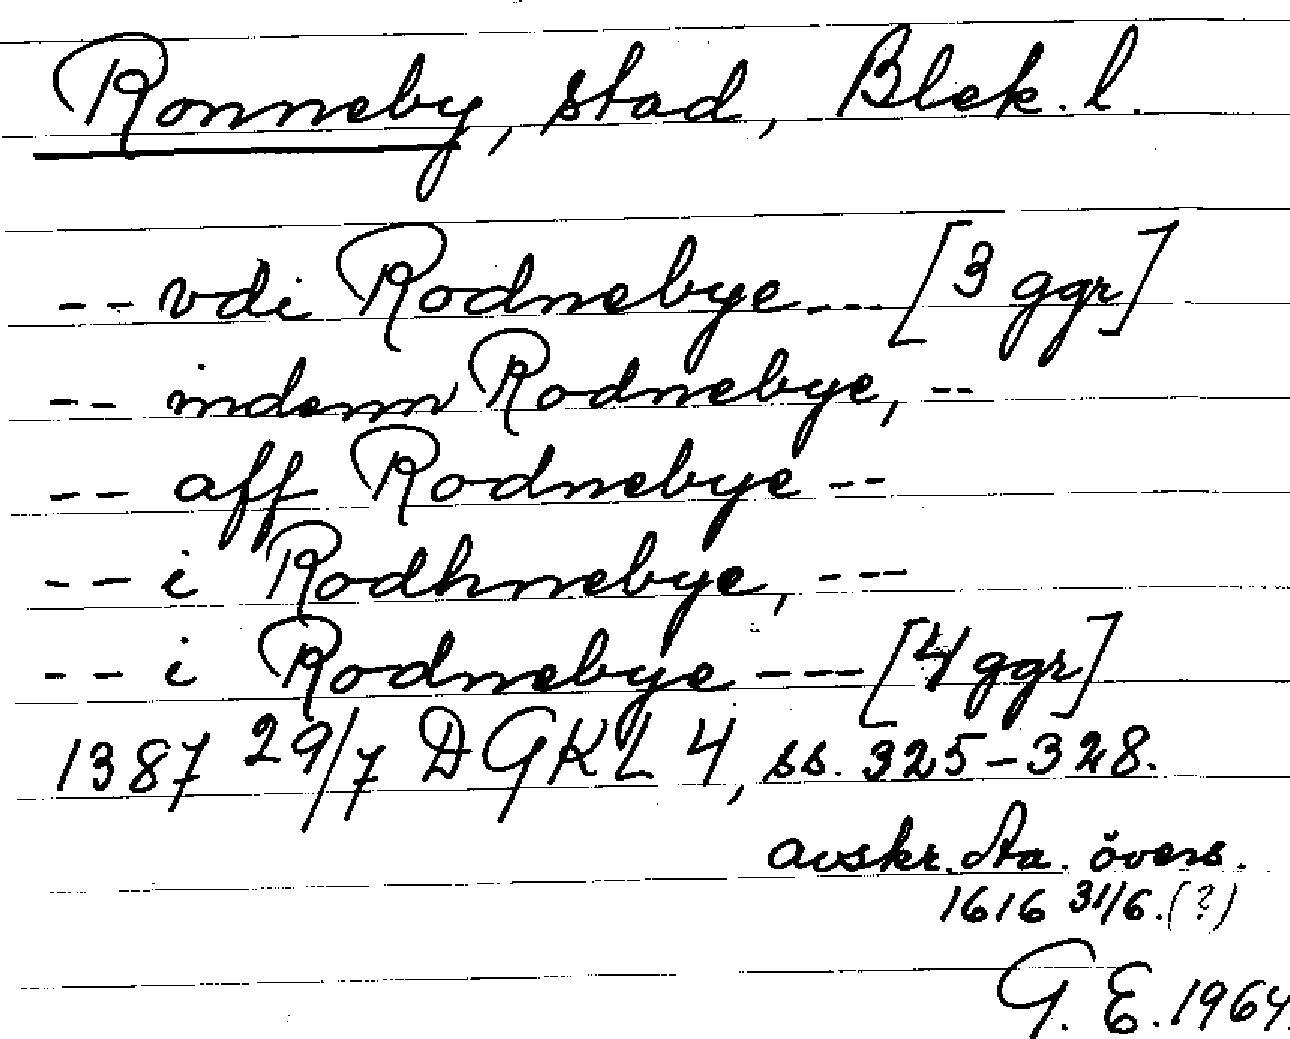 Ronneby, stad, Blek. l.
-- vdi Rodnebye --- [3 ggr]
-- indenn Rodnebye, --
-- aff Rodnebye --
-- i Rodhnebye, ---
-- i Rodnebye --- [4 ggr]
1387 29/7 DGKL 4, ss. 325-328.
avskr. da. övers.
1616 31/6. (?)
G. E. 1964.